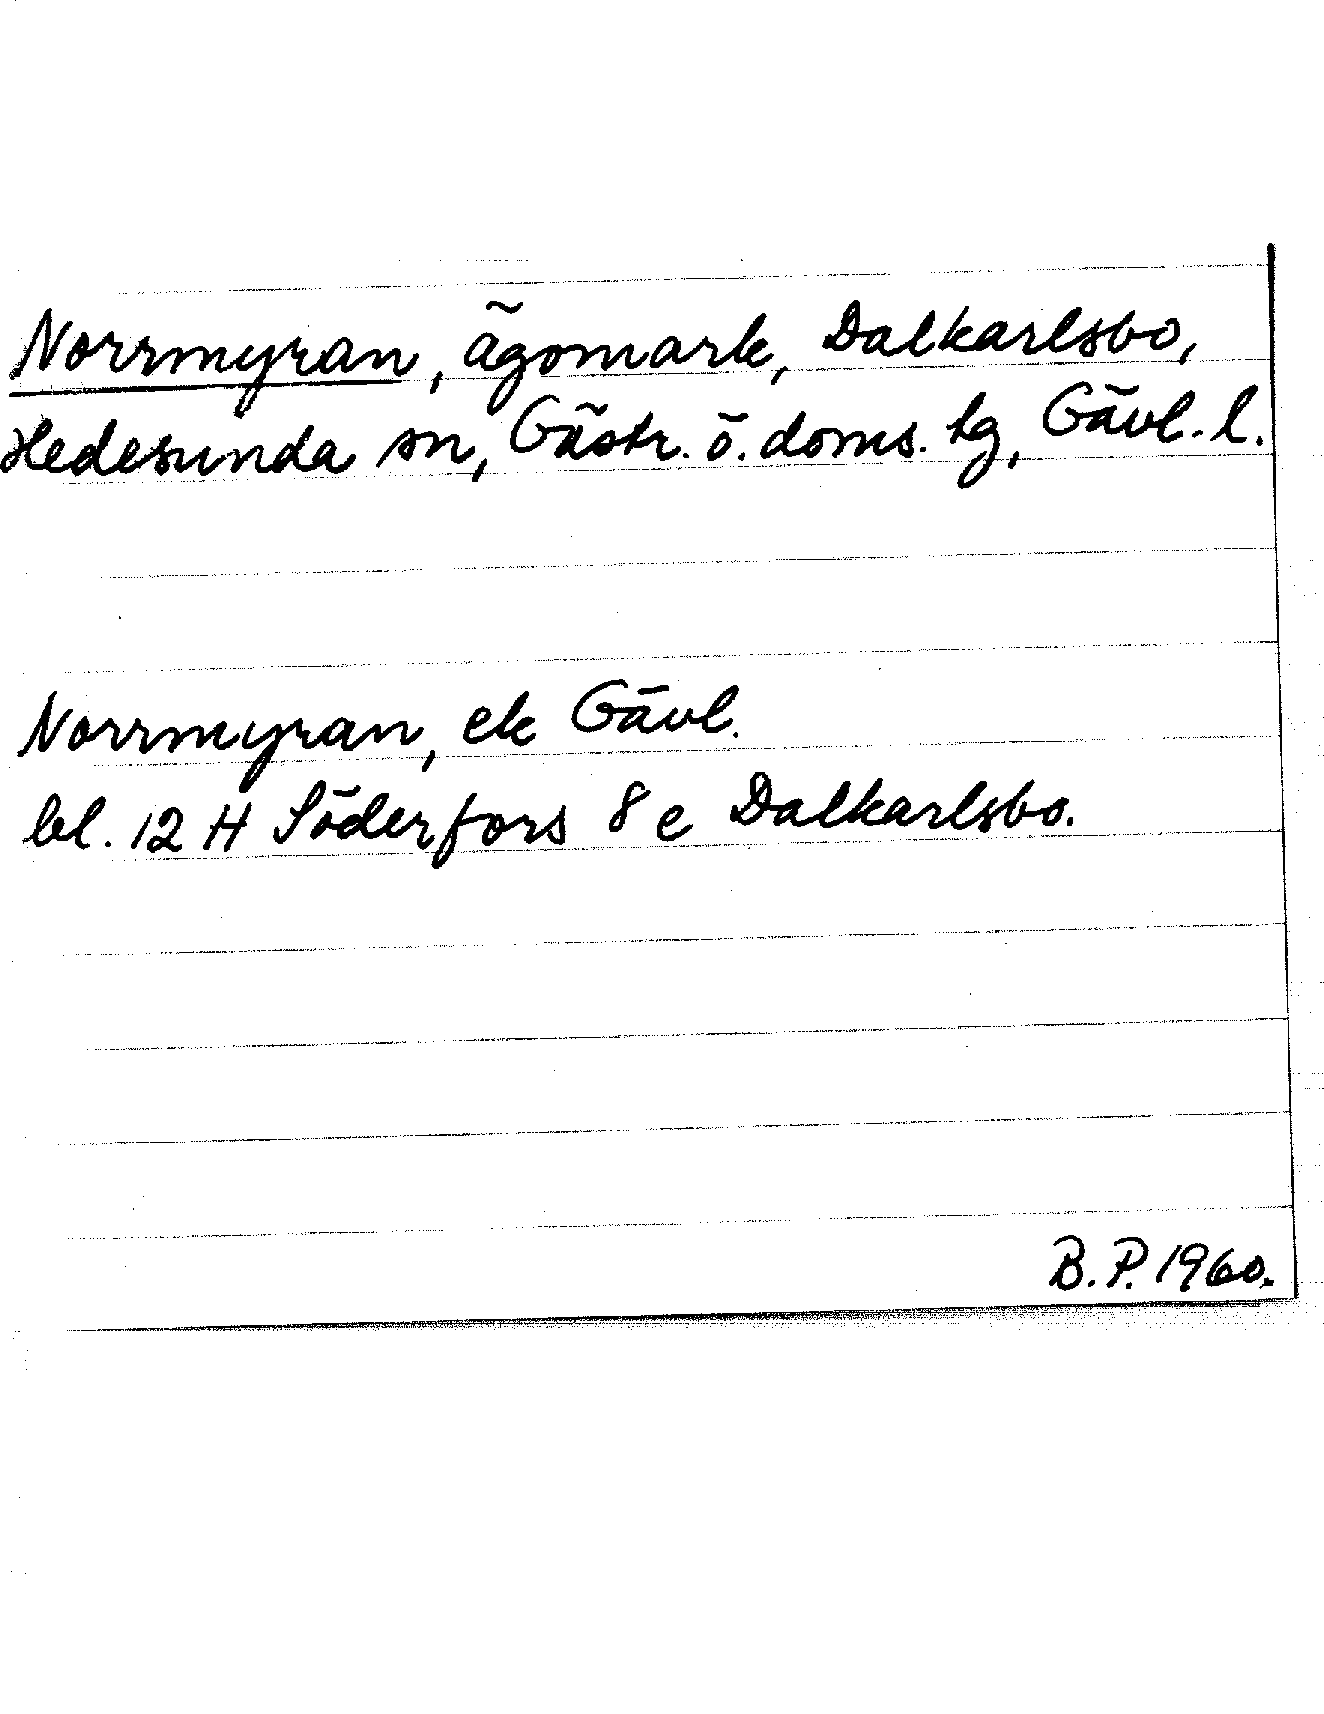 Norrmyran, ägomark, Dalkarlsbo,
Hedesunda sn, Gästr. ö. doms. tg, Gävl. l.
Norrmyran, ek Gävl.
bl. 12 H Söderfors 8 e Dalkarlsbo.
B.P. 1960.